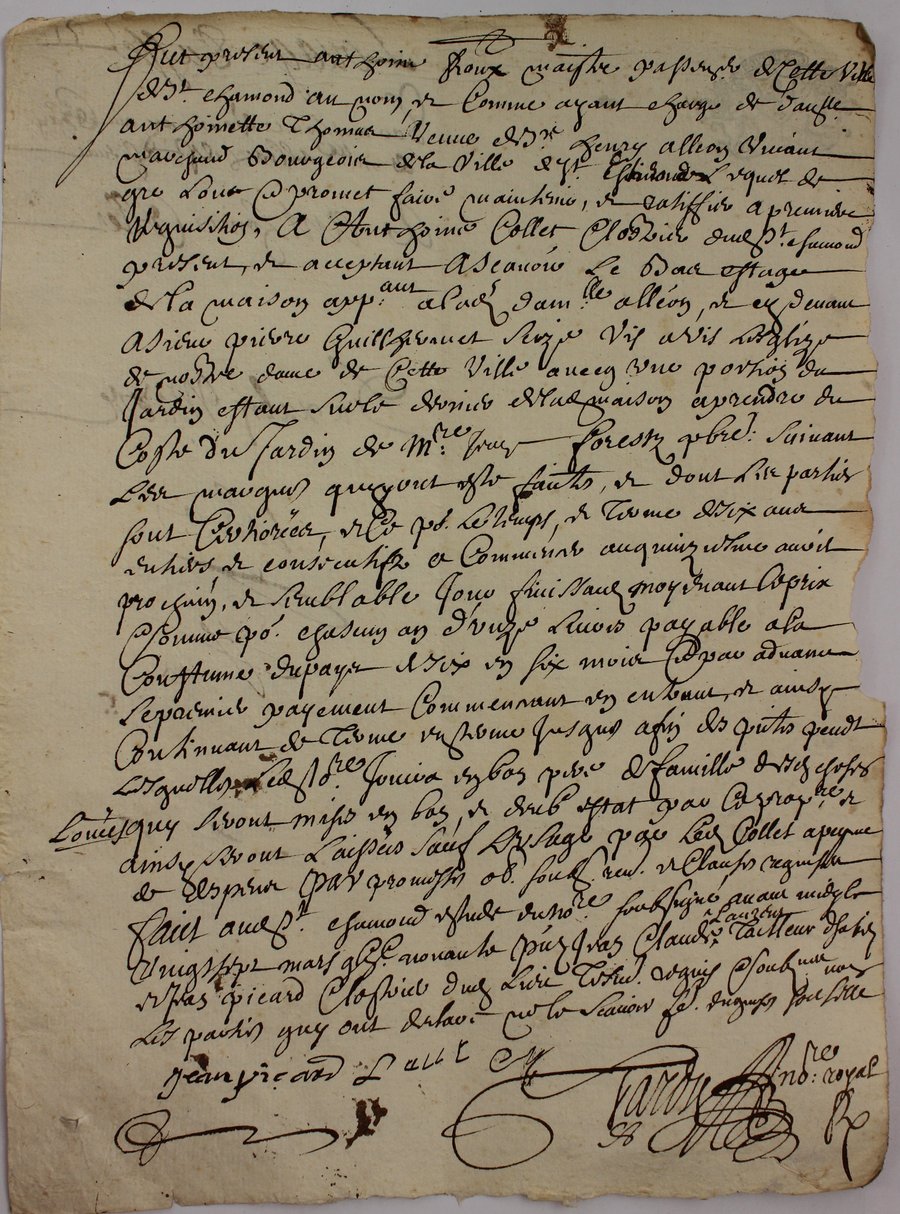 Fut present anthoine Roux maistre passem.r de Cette Ville
de St chamond au nom, et Comme ayant charge de dam.lle
anthoinette Thomas Veuve de Sr henry alleon Vivant
marchand Bourgeois de la Ville de St Lequel de
gre Loue et promet faire maintenir, et ratiffier a premiere
Requisition, A Anthoine Collet Clostrier dud St chamond
present, et acceptant Ascavoir Le Bas estage
de la maison app.ant a lad dam.lle alléon, et cy devant
a sieur pierre Guilhermet size vis a vis Leglize
de nostre dame de Cette Ville avecq une portion du
Jardin estant sur le derrier de lad maison a prendre du
Coste du Jardin de M.re Jean foresty pbre. suivant
Les marques quy ont este faites, et dont Les parties
sont Certiorées, et Ce p.r Le temps, et Terme de six ans
entiers et consecutifs a Commencer au quinziesme aoust
prochain, et semblable Jour finissant moyenant Le prix
et somme p.r chascun an d'unze Livres payable a la
Coustume du pays de six en six mois et par advance
Le premier payement Commencant en entrant, et ainsy
Continuant de Terme en terme Jusques a fin des pntes pendt
Lesquelles Led Jouira en bon pere de famille desd choses
Louées quy seront mises en bon, et deub estat par et
ainsy seront Laissées sauf Lusage par Led Collet a peyne
de despens par promesses ob. soub. ren. et Clauses requises
faict aud St chamond estude du no.re soubsigné avant midy le
Vingt sept mars gbc nonante p.nt Jean Claude Laurent Tailleur dhabis
et Jean picard Clostrier dud Lieu Tesm. requis et soubz.nes non
Les parties quy ont declaré ne le scavoir de
Jean picard
Tardy no.re royal